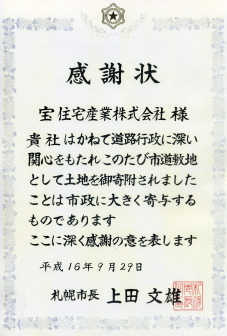 感謝状
宝住宅産業株式会社 様
貴社はかねて道路行政に深い
関心をもたれこのたび市道敷地
として土地を御寄附されました
ことは市政に大きく寄与する
ものであります
ここに深く感謝の意を表します
平成16年9月29日
札幌市長 上田 文雄